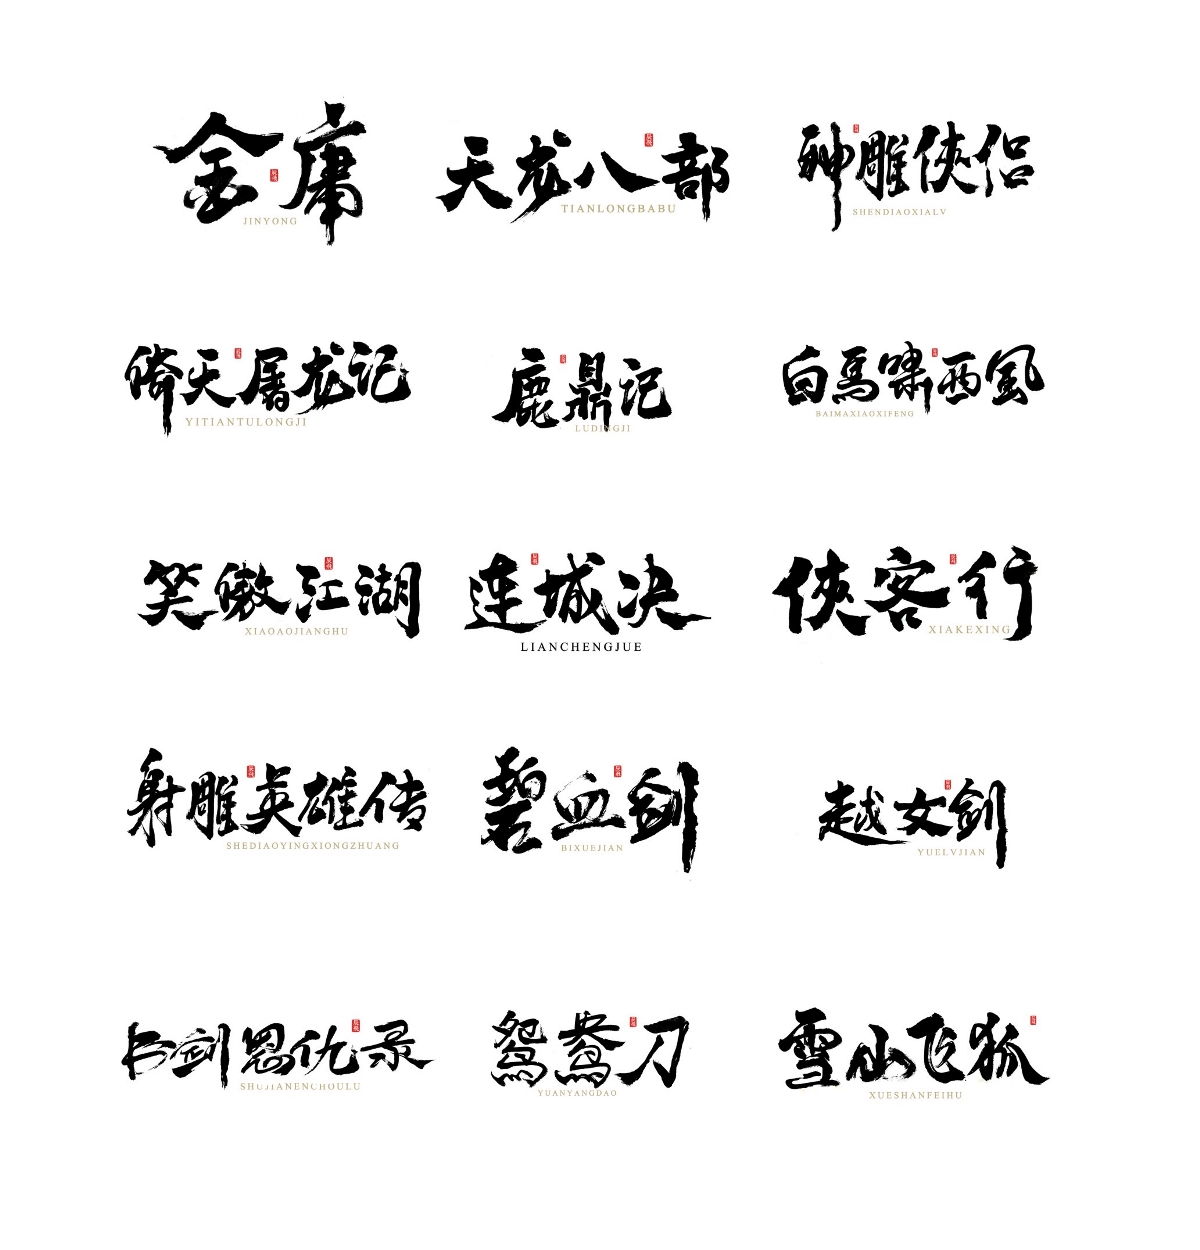 金庸
JINYONG
天龙八部
TIANLONGBABU
神雕侠侣
SHENDIAOXIALV
倚天屠龙记
YITIANTULONGJI
鹿鼎记
LUDINGJI
白馬啸西風
BAIMAXIAOXIFENG
笑傲江湖
XIAOAOJIANGHU
连城决
LIANCHENGJUE
俠客行
XIAKEXING
射雕英雄传
SHEDIAOYINGXIONGZHUANG
碧血剑
BIXUEJIAN
越女剑
YUELVJIAN
书剑恩仇录
SHUJIANENCHOULU
鸳鸯刀
YUANYANGDAO
雪山飞狐
XUESHANFEIHU